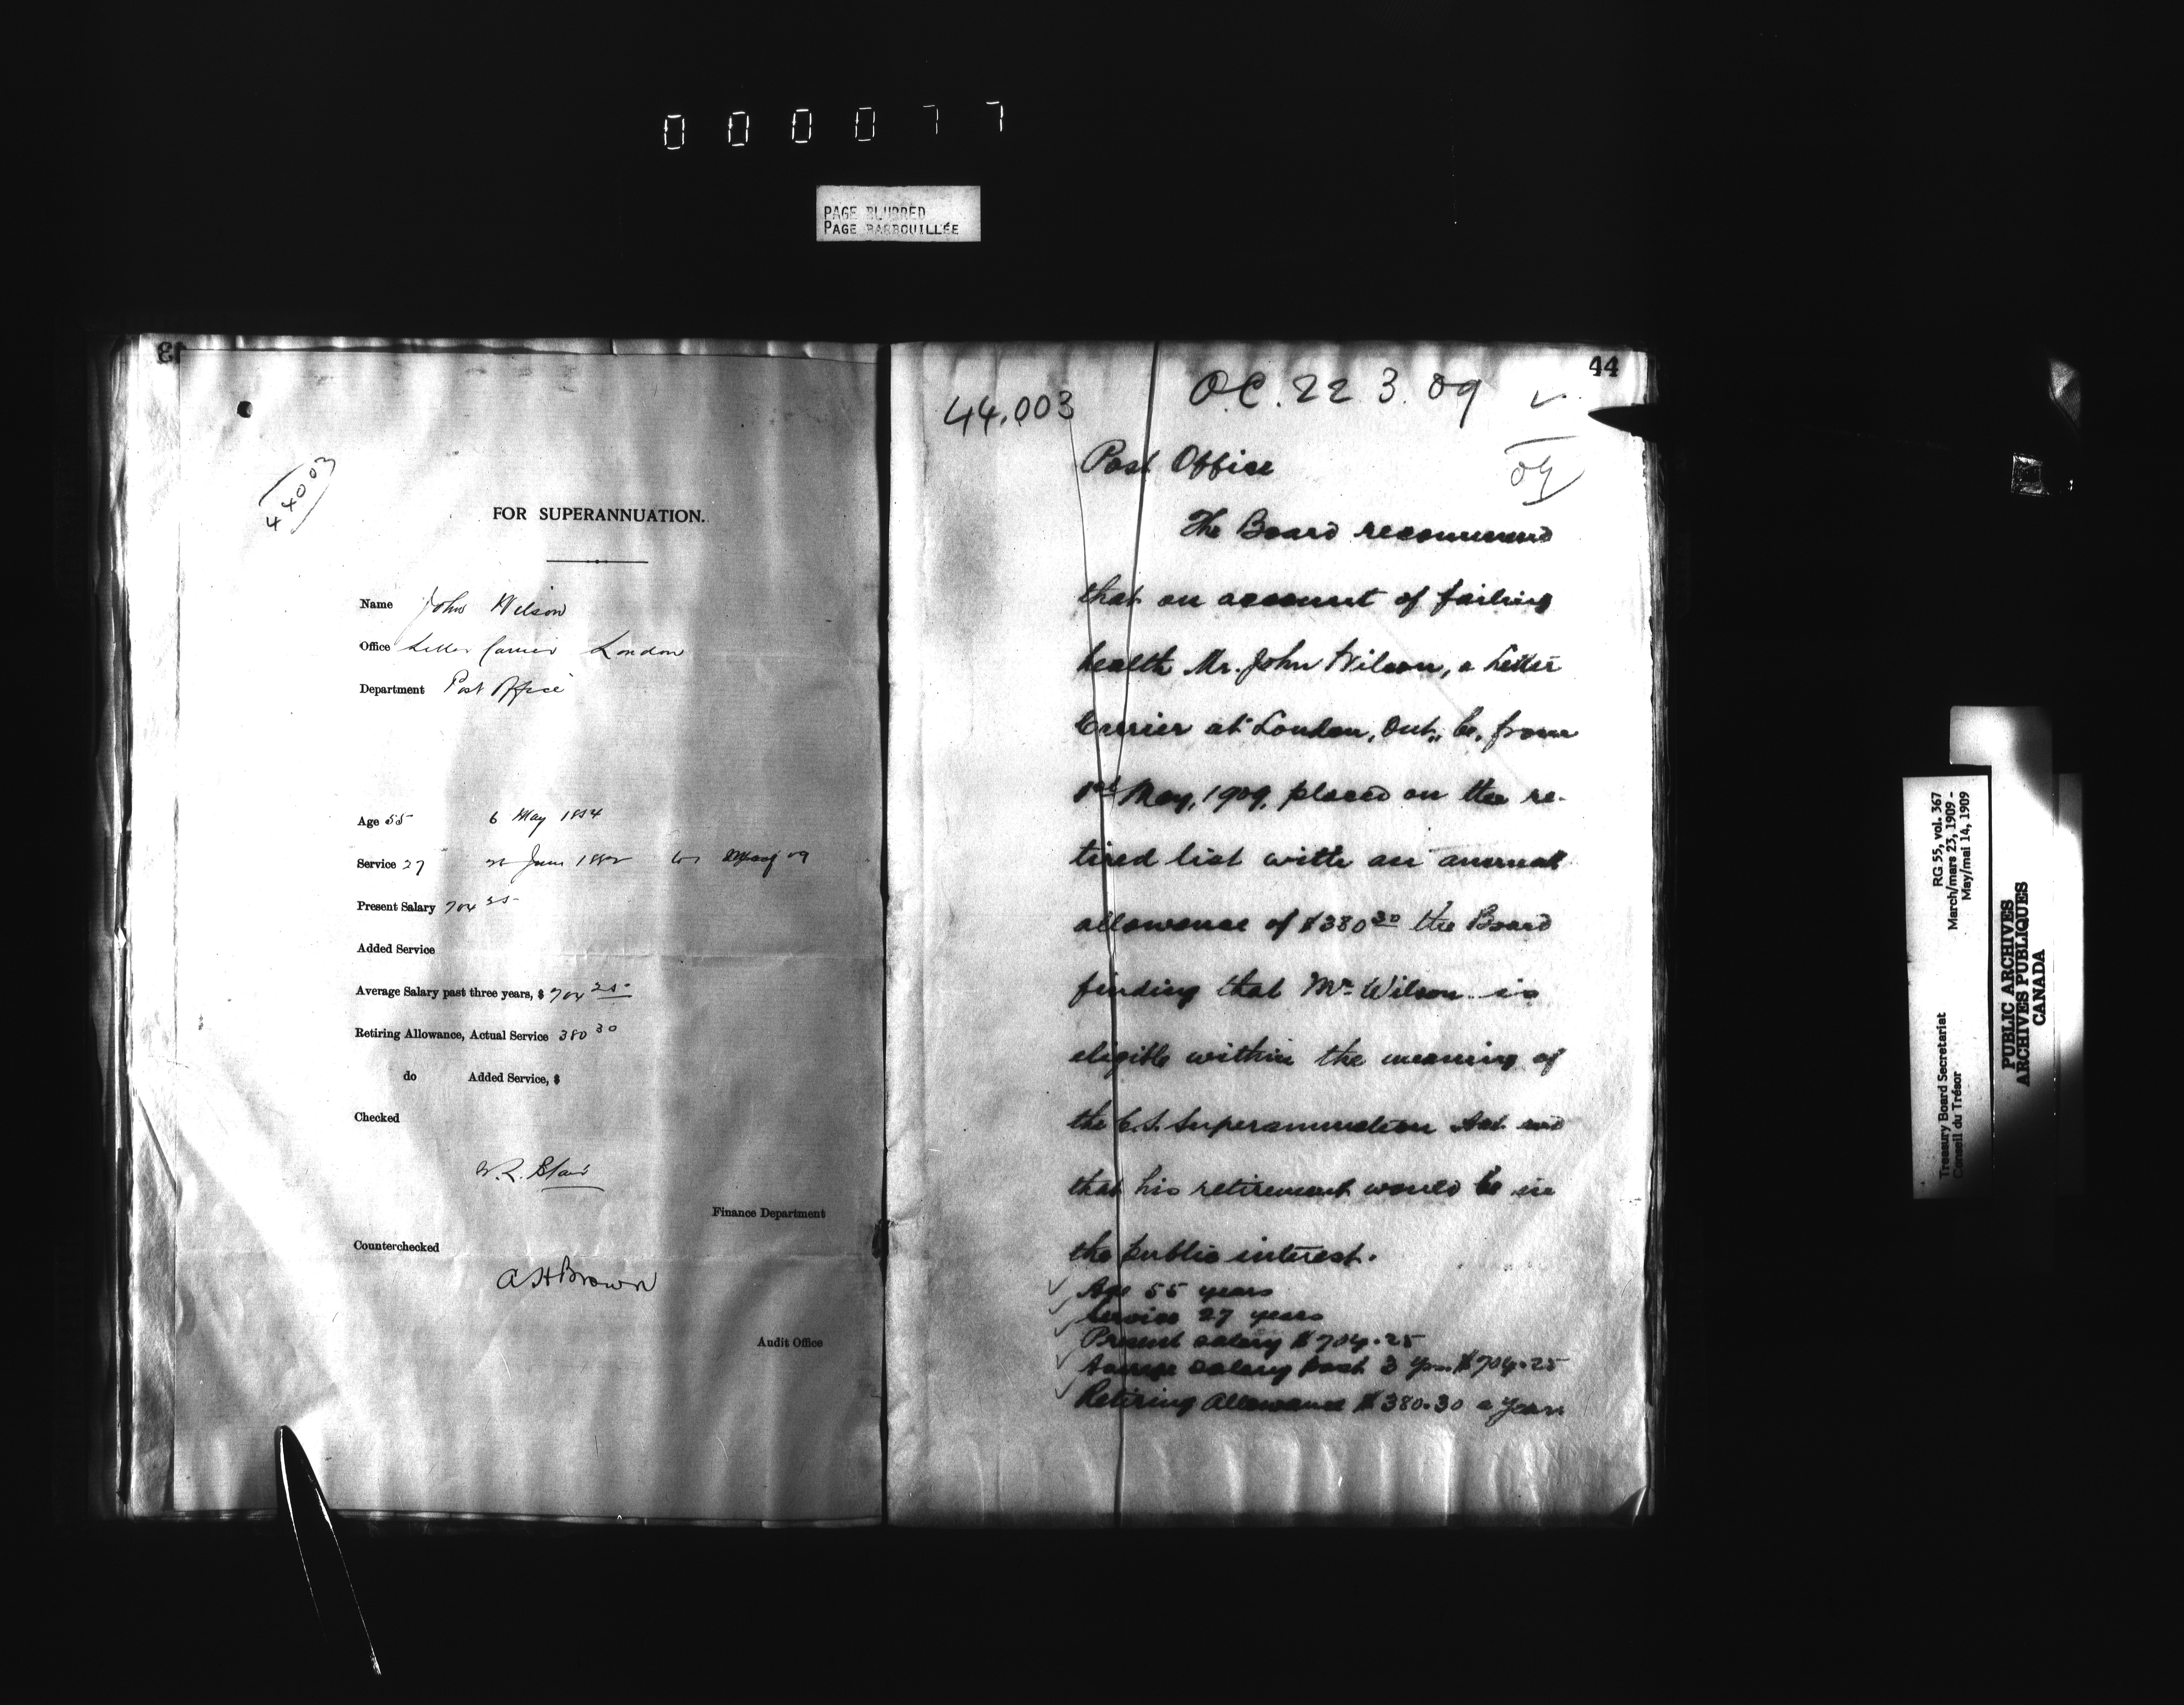 000077
PAGE BLURRED
PAGE BARBOUILLÉE
43
44003
FOR SUPERANNUATION.
Name John Wilson
Office Letter Carrier London
Department Post Office
Age 55 6 May 1854
Service 27 June 1882 to May 09
Present Salary 704 25
Added Service
Average Salary past three years, $ 704 25
Retiring Allowance, Actual Service 380 30
do Added Service, $
Checked
W.R. Blair
Finance Department
Counterchecked
A H Brown
Audit Office
44
44.003 O.C. 22.3.09
Post Office
09
The Board recommend
that on account of failing
health Mr. John Wilson, a Letter
Carrier at London, Ont., be, from
1st May, 1909, placed on the re-
tired list with an annual
allowance of $380 30 the Board
finding that Mr Wilson is
eligible within the meaning of
the C.S. Superannuation Act and
that his retirement would be in
the public interest.
Age 55 years
Service 27 years
Present salary $704.25
Average salary past 3 yrs. $704.25
Retiring Allowance $380.30 a year.
RG 55, vol. 367
March/mars 23, 1909 -
May/mai 14, 1909
Treasury Board Secretariat
Conseil du Trésor
PUBLIC ARCHIVES
ARCHIVES PUBLIQUES
CANADA